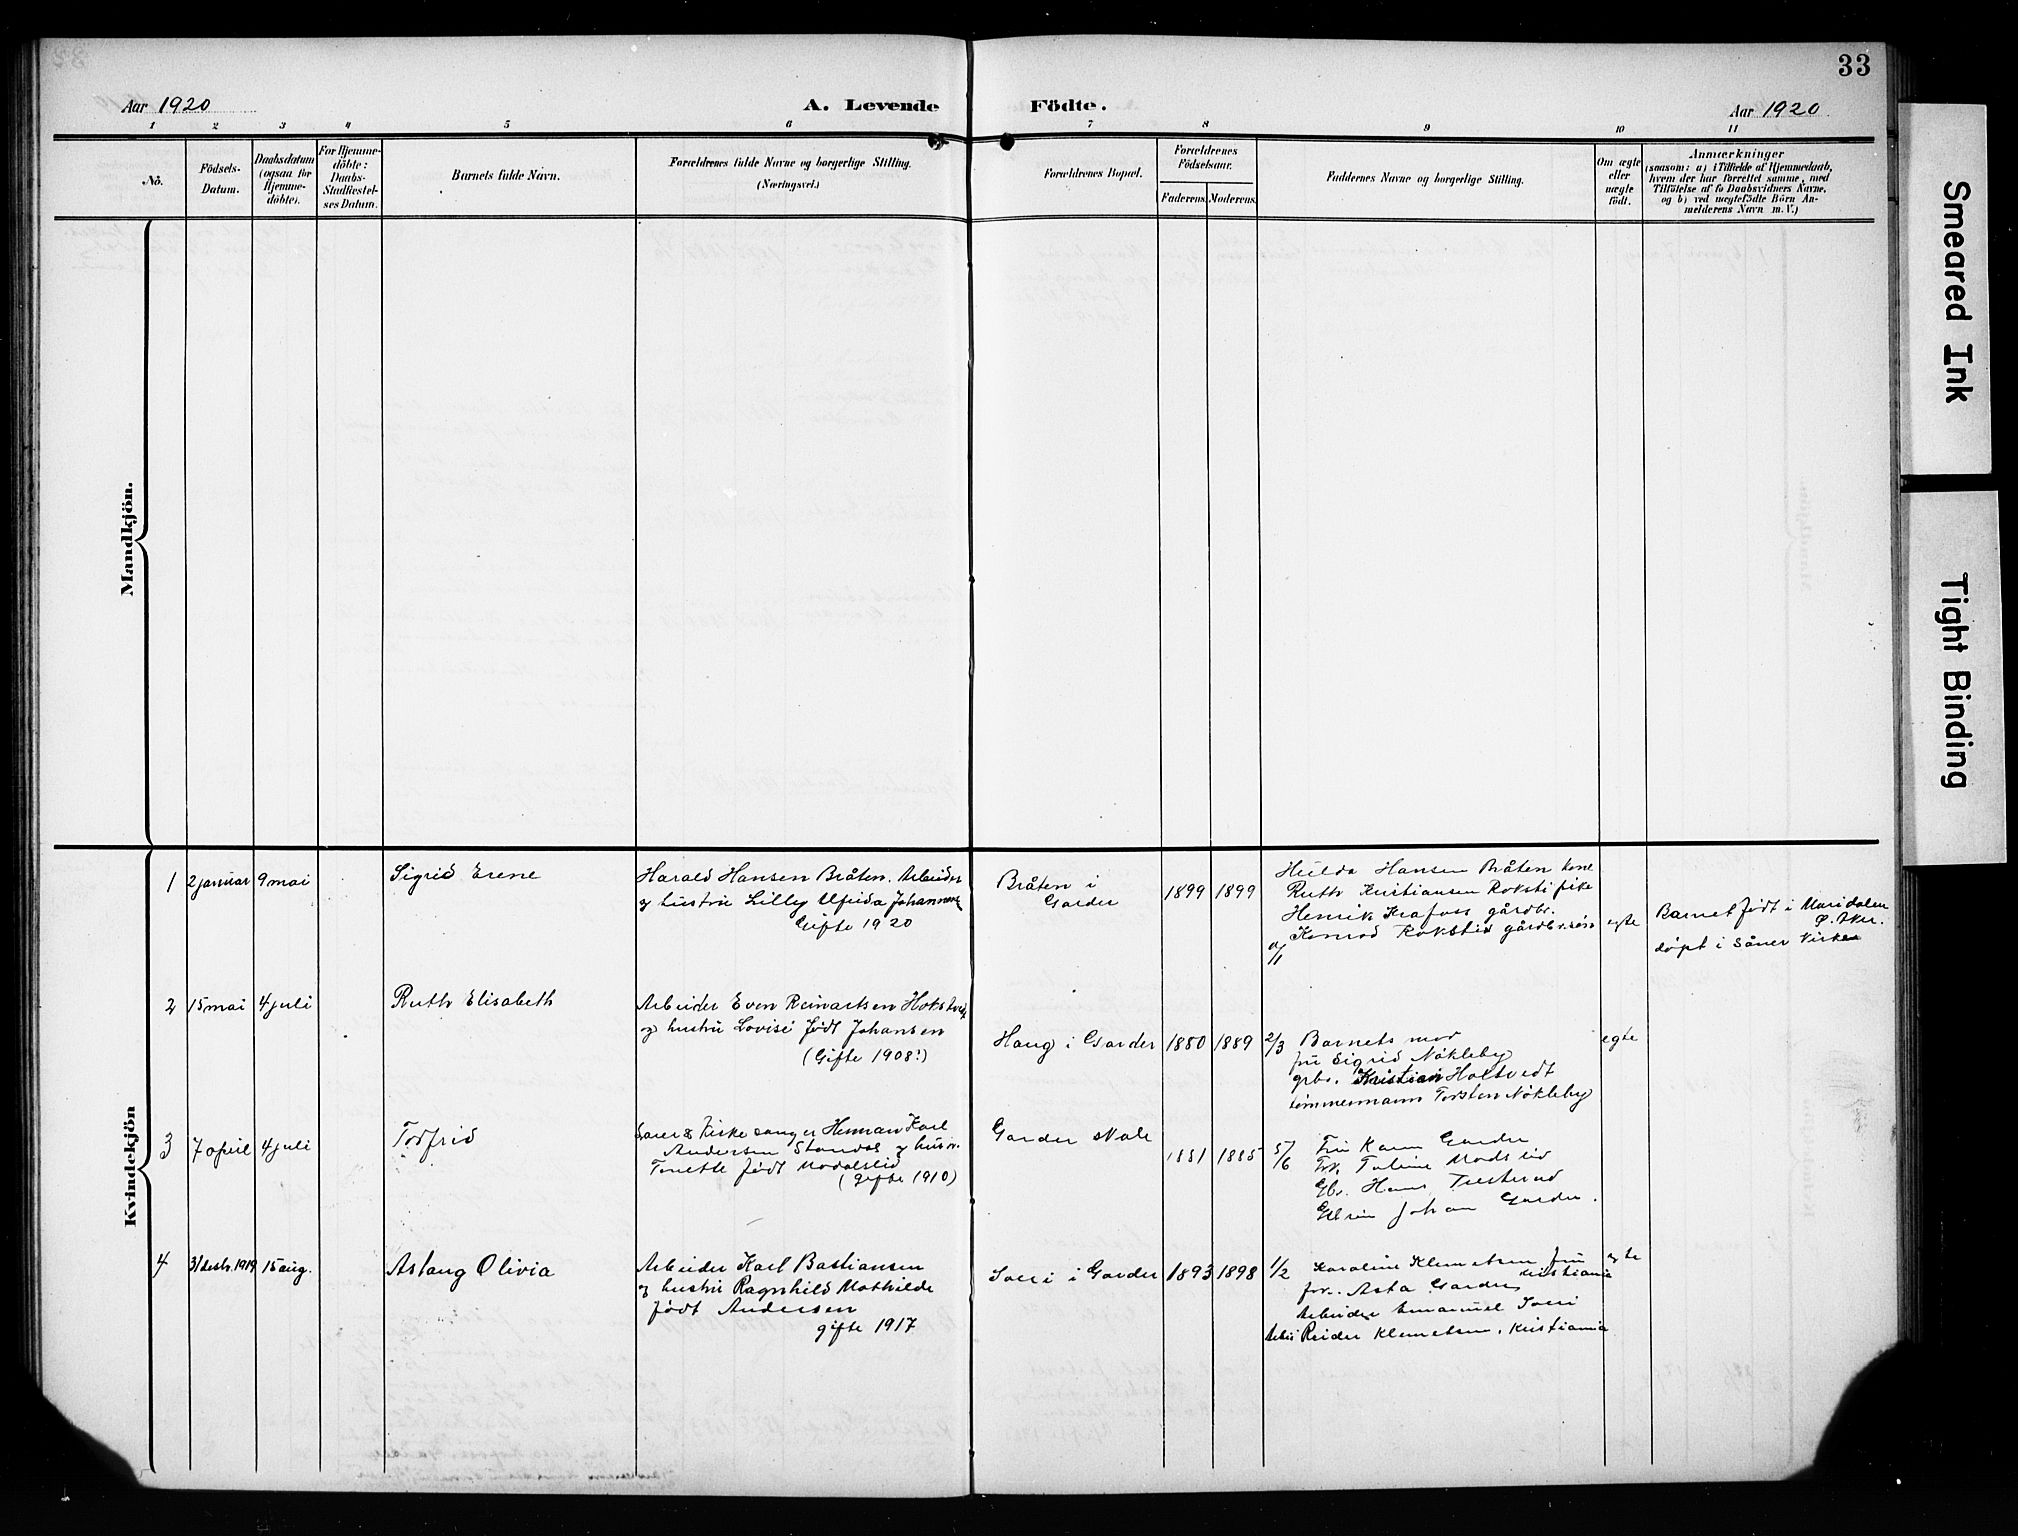 33
Aar 1920
A. Levende
Födte.
Aar 1920
1 2 3 4 5 6 7 8 9 10 11
No.
Födsels-
Datum.
Daabsdatum
(ogsaa for
Hjemme-
döbte).
For Hjemme-
döbte:
Daabs-
Stadfæstel-
ses Datum.
Barnets fulde Navn.
Forældrenes fulde Navne og borgerlige Stilling.
(Næringsvei.)
Forældrenes Bopæl.
Forældrenes
Födselsaar.
Faderens. Moderens.
Faddernes Navne og borgerlige Stilling.
Om ægte
eller
uægte
födt.
Anmærkninger
(saasom: a) i Tilfælde af Hjemmedaab,
hvem der har forrettet samme, med
Tilföielse af to Daabsvidners Navne,
og b) ved uægtefödte Börn An-
melderens Navn m. V.)
Mandkjön.
Kvindekjön
1 2 januar 9 mai
Sigrid Erene
Harald Hansen Bråten. Arbeider
og hustru Lilly Alfrida Johannesen
Gifte 1920
Bråten i
Garder
1899 1899
Hulda Hansen Bråten kone
Ruth Kristiansen Roksti pike
Henrik Krafoss gårdbr.
Konrad Rokstid gårdbr.søn
egte
Barnet født i Maridalen
Ø. Aker.
døpt i Såner Kirke
2 15 mai 4 juli
Ruth Elisabeth
Arbeider Even Reinartsen
og hustru Lovise født Johansen
(Gifte 1908!)
Haug i Garder
1880 1889
2/3 Barnets mor
fru Sigrid Nökleby
grbr. Kristian Holtvedt
tømmermann Torsten Nökleby
egte
3 7 april 4 juli
Torfrid
Lærer & Kirkesanger Herman Karl
Andersen Standal og hustru
Tonette født Modalslid
(gifte 1910)
Garder skole
1881 1885
5/6 Fru Karen Garder
Frk. Modslid
Gbr. Hans
Johan Garder.
4 31 desbr. 1919 15 aug.
Aslaug Olivia
Arbeider Karl Bastiansen
og hustru Ragnhild Mathilde
født Andersen
gifte 1917
i Garder
1893 1898
1/2 Karoline Klemetsen fru
Kristiania
frk. Asta Garder
Arbeider Emanuel
Arbei Reidar Klemetsen, Kristiania
egte
Smeared Ink
Tight Binding